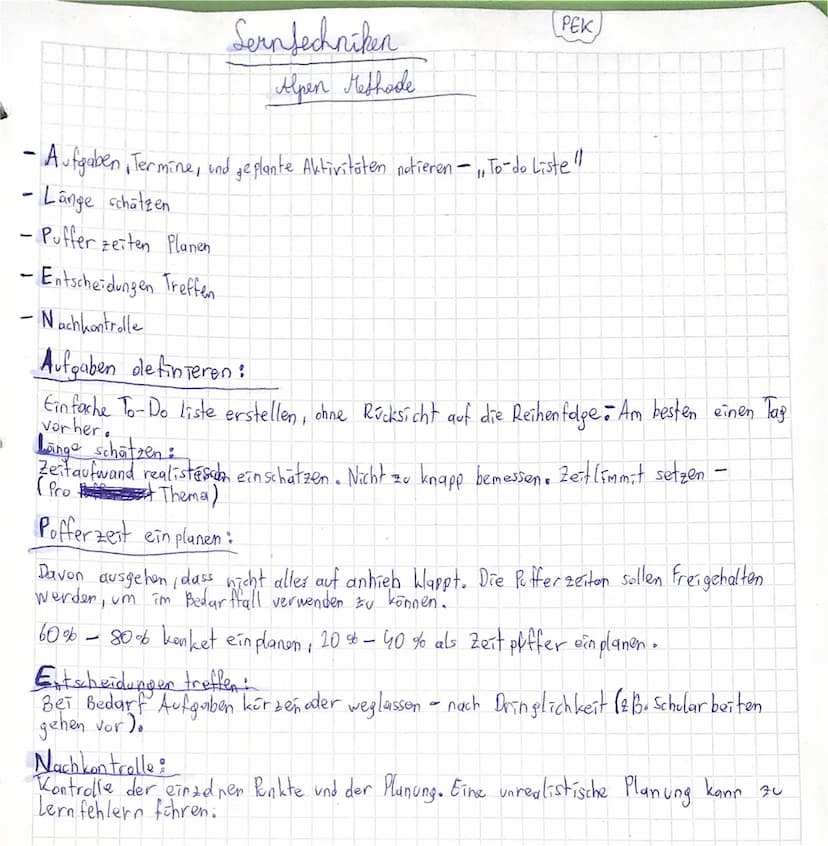 PEK
Lerntechniken
Alpen Methode
- Aufgaben, Termine, und geplante Aktivitäten notieren - „To-do Liste"
- Länge schätzen
- Pufferzeiten Planen
- Entscheidungen Treffen
- Nachkontrolle
Aufgaben definieren:
Einfache To-Do liste erstellen, ohne Rücksicht auf die Reihenfolge. - Am besten einen Tag
vorher.
Länge schätzen:
Zeitaufwand realistisch einschätzen. Nicht zu knapp bemessen. Zeitlimmit setzen -
(Pro Thema)
Pufferzeit einplanen:
Davon ausgehen, dass nicht alles auf anhieb klappt. Die Pufferzeiten sollen freigehalten
werden, um im Bedarffall verwenden zu können.
60% - 80% konket einplanen, 20% - 40% als Zeitpuffer einplanen.
Entscheidungen treffen:
Bei Bedarf Aufgaben kürzen oder weglassen - nach Dringlichkeit (zB. Schularbeiten
gehen vor).
Nachkontrolle:
Kontrolle der einzelnen Punkte und der Planung. Eine unrealistische Planung kann zu
Lernfehlern führen.